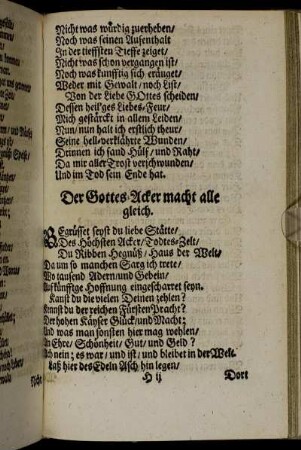 Nicht was würdig zuerheben/
Noch was seinen Aufenthalt
In der tieffsten Tieffe zeiget/
Nicht was schon vergangen ist/
Noch was kunfftig sich eräuget/
Weder mit Gewalt/ noch List/
Von der Liebe GOttes scheiden/
Dessen heil'ges Liebes-Feur/
Mich gestärckt in allem Leiden/
Nun/ nun halt ich erstlich theur/
Seine hell-verklährte Wunden/
Drinnen ich fand Hülf/ und Raht/
Da mir aller Trost verschwunden/
Und im Tod sein Ende hat.
Der Gottes-Acker macht alle
gleich.
BEgrüsset seyst du liebe Stätte/
Des Höchsten Acker/ Todtes-Zelt/
Du Ribben Hegnüß/ Haus der Welt/
Da um so manchen Sarg ich trete/
Wo tausend Adern/ und Gebein/
Auf künfftge Hoffnung eingescharret seyn.
Kanst du die vielen Deinen zehlen?
Kennst du der reichen Fürsten Pracht?
Der hohen Käyser Glück/ und Macht:
Und was man sonsten hier mag wehlen/
An Ehre/ Schönheit/ Gut/ und Geld?
Ach nein; es war/ und ist/ und bleibet in der Welt.
Laß hier des Edeln Asch hin legen/
H ij
Dort